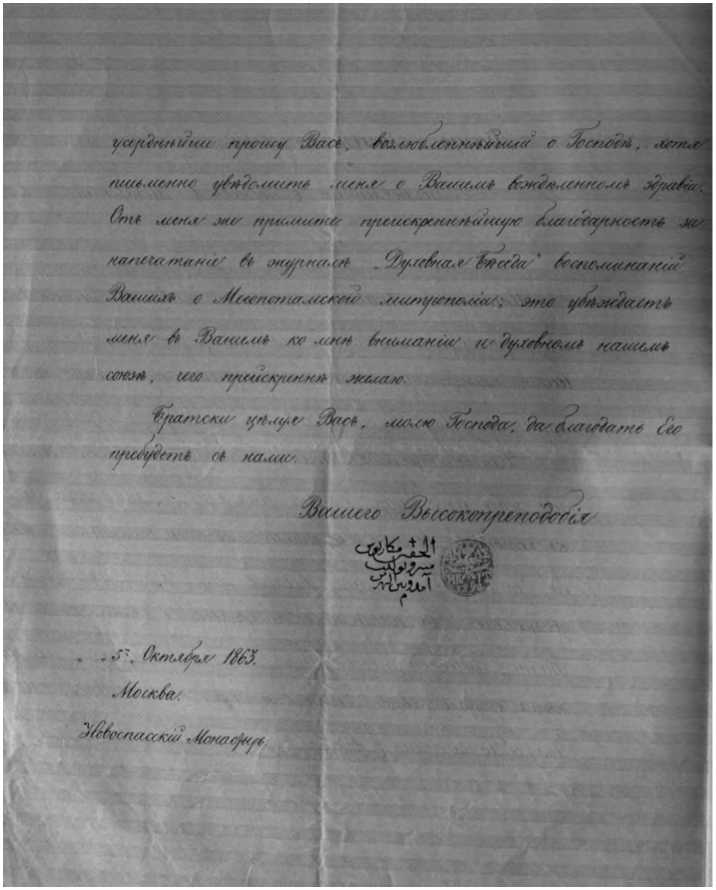 усерднѣйше прошу Васъ, возлюбленнѣйшій о Господѣ, хотя
письменно увѣдомить меня о Вашемъ вожделенномъ здравіи.
Отъ меня же примите преискреннѣйшую благодарность за
напечатаніе въ журналѣ „Духовная Бесѣда" воспоминаній
Вашихъ о Месопотамской митрополіи; это убѣждаетъ
меня въ Вашемъ ко мнѣ вниманіи и духовномъ нашемъ
союзѣ, чего преискреннѣ желаю.
Братски цѣлуя Васъ, молю Господа, да благодать Его
пребудетъ съ нами.
Вашего Высокопреподобія
الحقير مكاريوس
ميتروبوليت
„5", Октября 1863.
Москва.
Новоспасскій Монастырь,